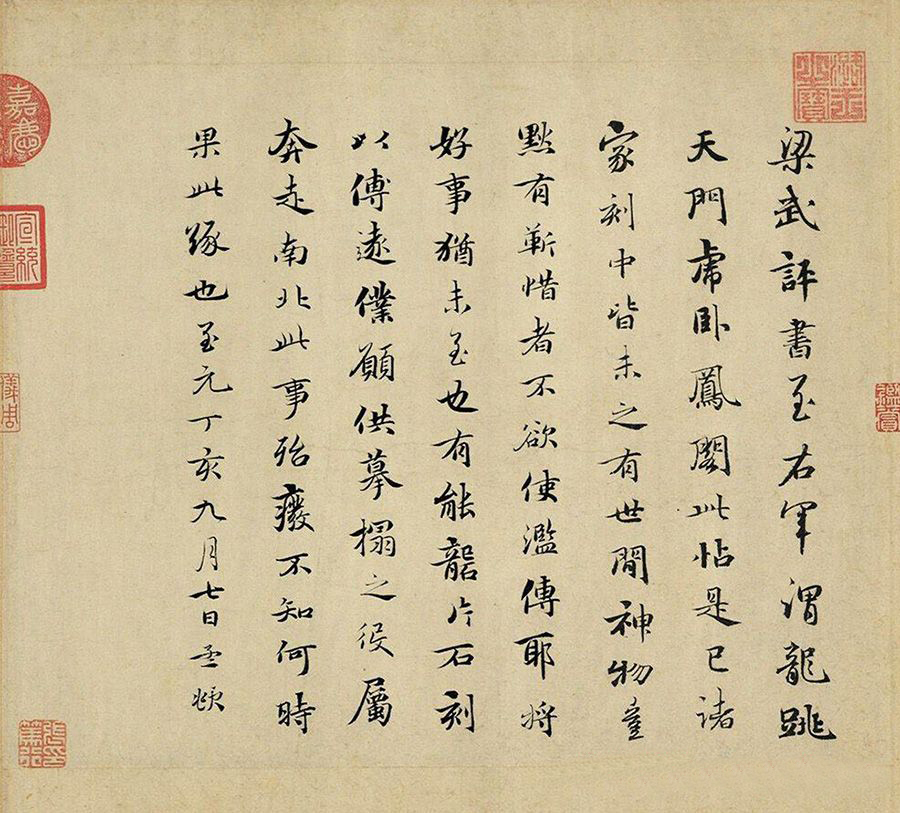 梁武評書至右軍謂龍跳
天門虎臥鳳閣此帖是已諸
家刻中皆未之有世間神物豈
默有靳惜者不欲使濫傳耶將
好事猶未至也有能礱片石刻
以傳遠僕願供摹搨之役屬
奔走南北此事殆癈不知何時
果此緣也至元丁亥九月七日孟頫
嘉慶
宣統
鑑賞